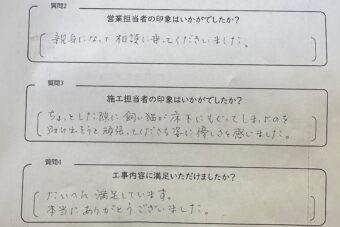 質問2
営業担当者の印象はいかがでしたか?
親身になって相談に乗ってくださいました。
質問3
施工担当者の印象はいかがでしたか?
ちょっとした隙に飼い猫が床下にもぐってしまったのを
助け出そうと頑張ってくださる姿に優しさを感じました。
質問4
工事内容に満足いただけましたか?
たいへん満足しています。
本当にありがとうございました。